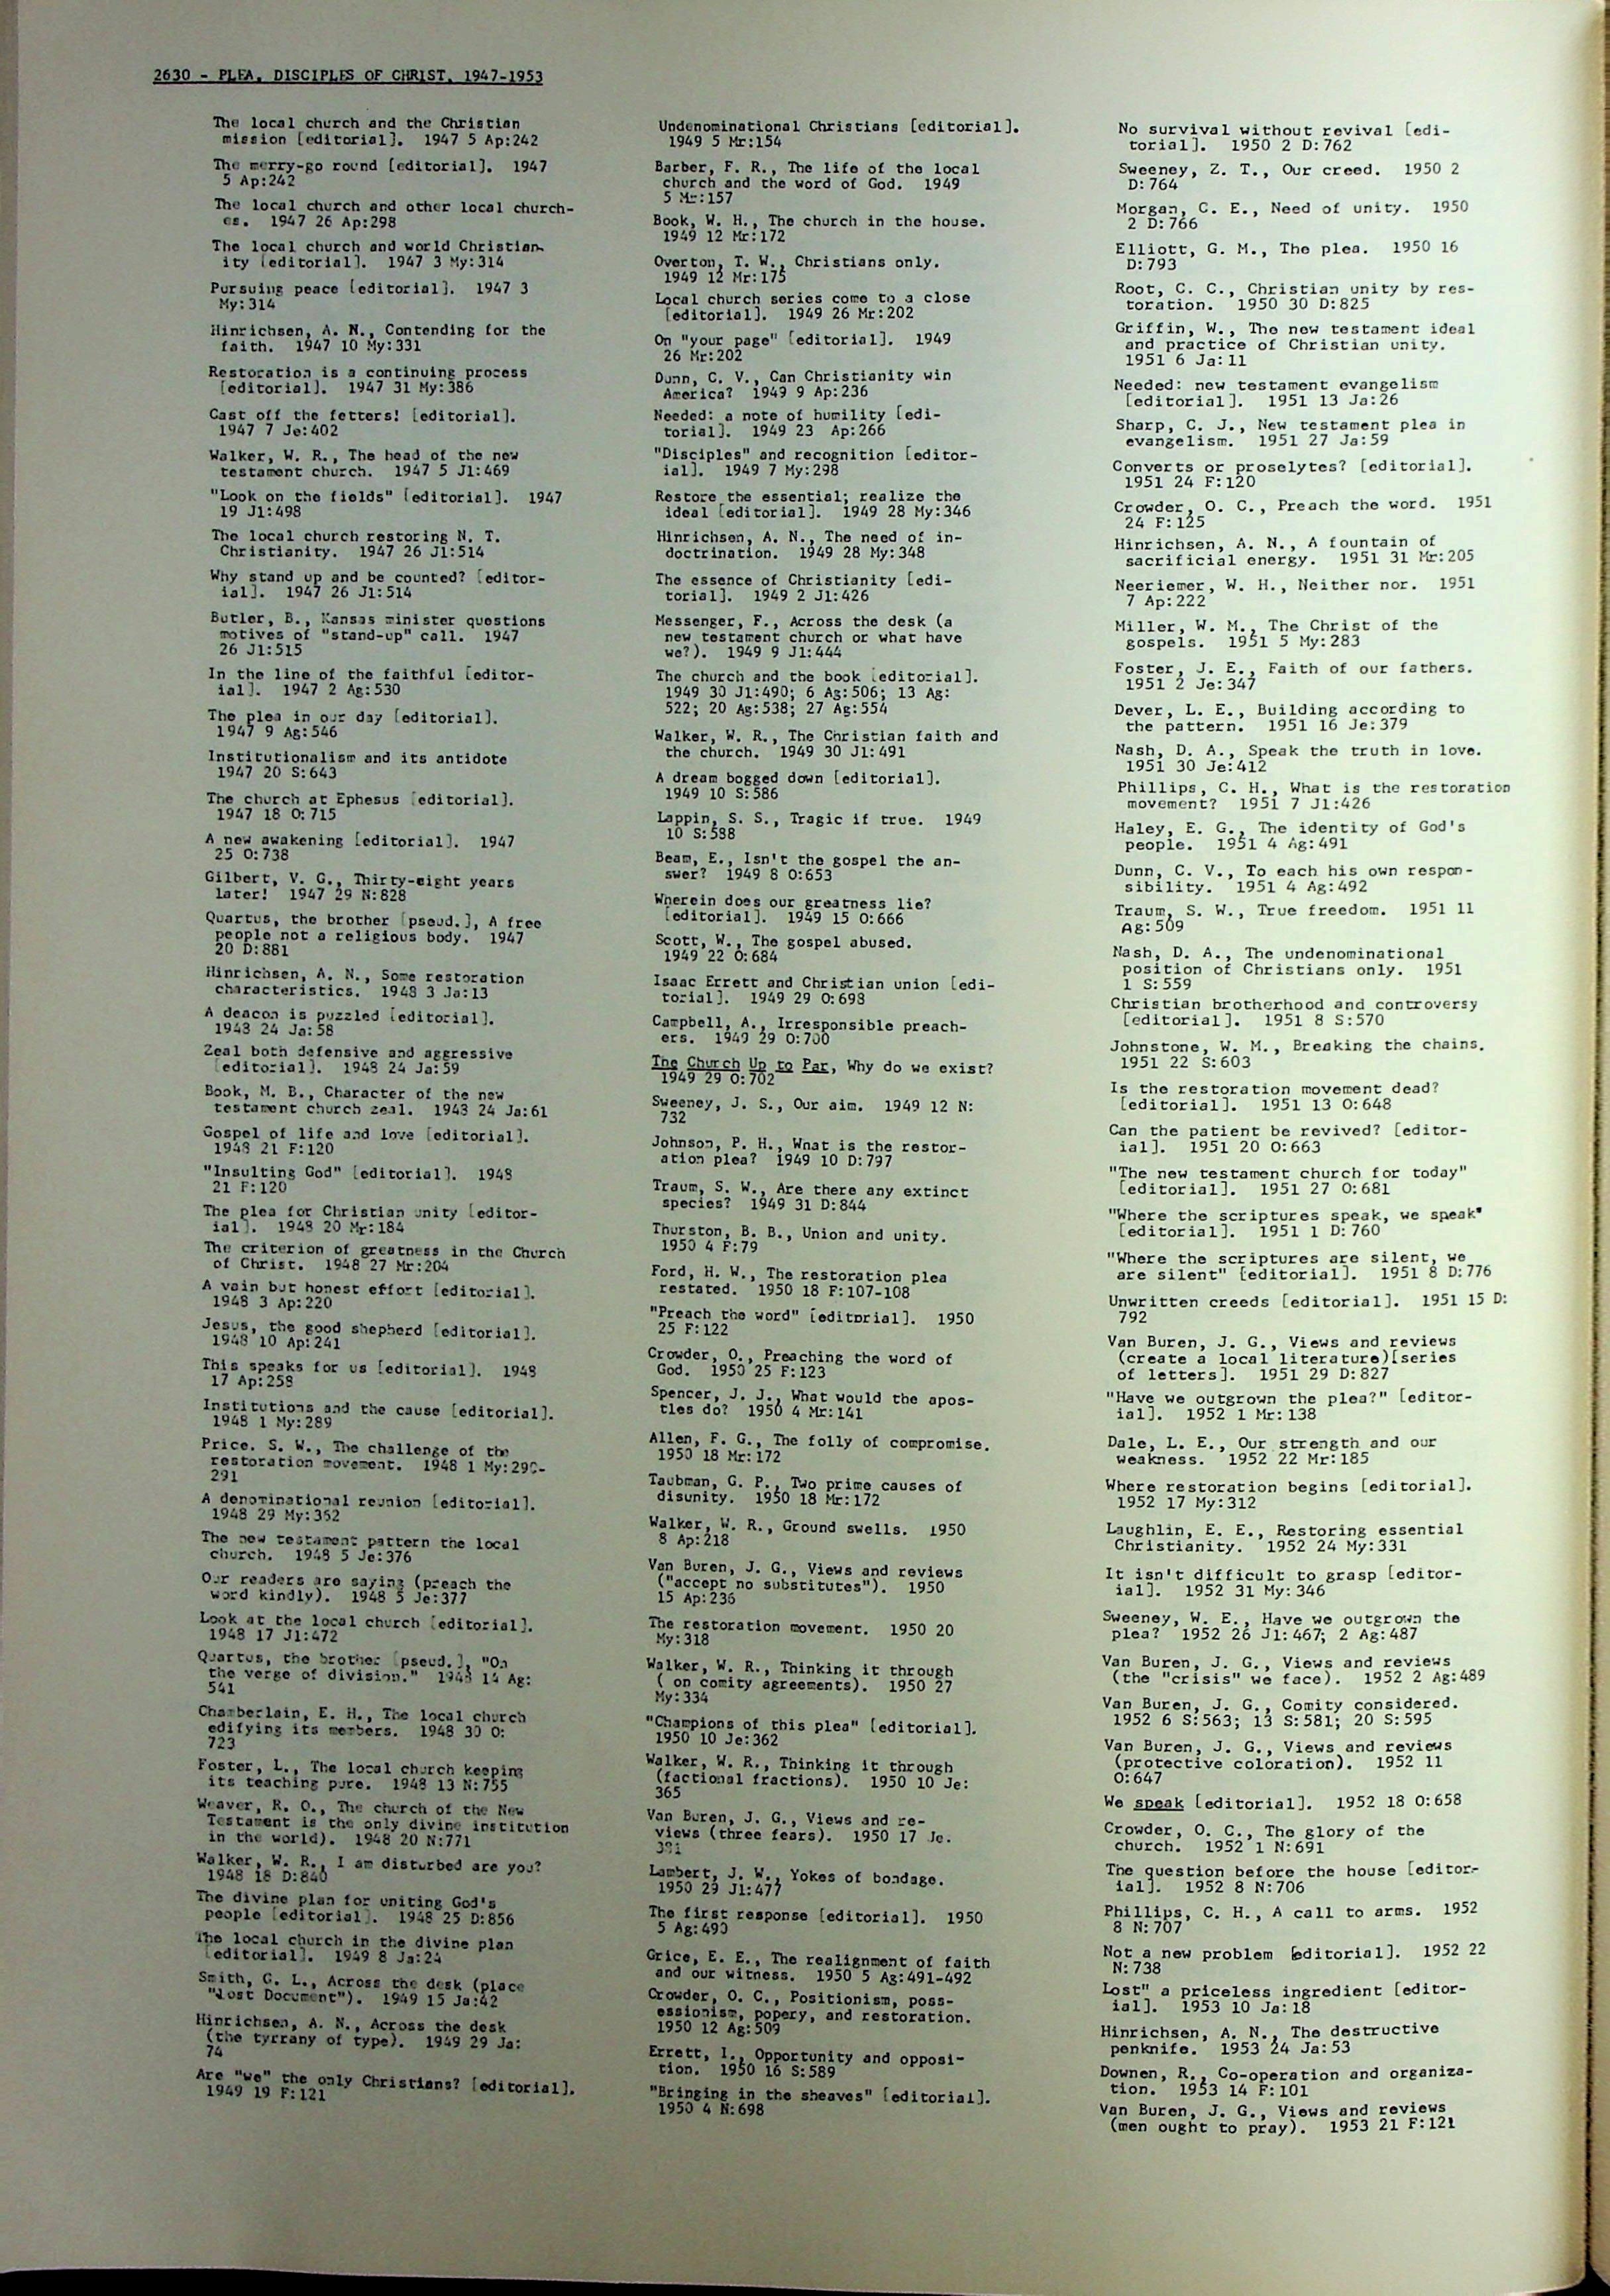 2630 - PLEA, DISCIPLES OF CHRIST, 1947-1953
The local church and the Christian
mission [editorial]. 1947 5 Ap:242
The merry-go round [editorial]. 1947
5 Ap:242
The local church and other local church-
es. 1947 26 Ap:298
The local church and world Christian-
ity [editorial]. 1947 3 My:314
Pursuing peace [editorial]. 1947 3
My:314
Hinrichsen, A. N., Contending for the
faith. 1947 10 My:331
Restoration is a continuing process
[editorial]. 1947 31 My:386
Cast off the fetters! [editorial].
1947 7 Je:402
Walker, W. R., The head of the new
testament church. 1947 5 Jl:469
"Look on the fields" [editorial]. 1947
19 Jl:498
The local church restoring N. T.
Christianity. 1947 26 Jl:514
Why stand up and be counted? [editor-
ial]. 1947 26 Jl:514
Butler, B., Kansas minister questions
motives of "stand-up" call. 1947
26 Jl:515
In the line of the faithful [editor-
ial]. 1947 2 Ag:530
The plea in our day [editorial].
1947 9 Ag:546
Institutionalism and its antidote
1947 20 S:643
The church at Ephesus [editorial].
1947 18 O:715
A new awakening [editorial]. 1947
25 O:738
Gilbert, V. G., Thirty-eight years
later! 1947 29 N:828
Quartus, the brother [pseud.], A free
people not a religious body. 1947
20 D:881
Hinrichsen, A. N., Some restoration
characteristics. 1948 3 Ja:13
A deacon is puzzled [editorial].
1948 24 Ja:58
Zeal both defensive and aggressive
[editorial]. 1948 24 Ja:59
Book, M. B., Character of the new
testament church zeal. 1948 24 Ja:61
Gospel of life and love [editorial].
1948 21 F:120
"Insulting God" [editorial]. 1948
21 F:120
The plea for Christian unity [editor-
ial]. 1948 20 Mr:184
The criterion of greatness in the Church
of Christ. 1948 27 Mr:204
A vain but honest effort [editorial].
1948 3 Ap:220
Jesus, the good shepherd [editorial].
1948 10 Ap:241
This speaks for us [editorial]. 1948
17 Ap:258
Institutions and the cause [editorial].
1948 1 My:289
Price. S. W., The challenge of the
restoration movement. 1948 1 My:290-
291
A denominational reunion [editorial].
1948 29 My:352
The new testament pattern the local
church. 1948 5 Je:376
Our readers are saying (preach the
word kindly). 1948 5 Je:377
Look at the local church [editorial].
1948 17 Jl:472
Quartus, the brother [pseud.], "On
the verge of division." 1948 14 Ag:
541
Chamberlain, E. H., The local church
edifying its members. 1948 30 O:
723
Foster, L., The local church keeping
its teaching pure. 1948 13 N:755
Weaver, R. O., The church of the New
Testament is the only divine institution
in the world). 1948 20 N:771
Walker, W. R., I am disturbed are you?
1948 18 D:840
The divine plan for uniting God's
people [editorial]. 1948 25 D:856
The local church in the divine plan
[editorial]. 1949 8 Ja:24
Smith, G. L., Across the desk (place
"Lost Document"). 1949 15 Ja:42
Hinrichsen, A. N., Across the desk
(the tyrrany of type). 1949 29 Ja:
74
Are "we" the only Christians? [editorial].
1949 19 F:121
Undenominational Christians [editorial].
1949 5 Mr:154
Barber, F. R., The life of the local
church and the word of God. 1949
5 Mr:157
Book, W. H., The church in the house.
1949 12 Mr:172
Overton, T. W., Christians only.
1949 12 Mr:175
Local church series come to a close
[editorial]. 1949 26 Mr:202
On "your page" [editorial]. 1949
26 Mr:202
Dunn, C. V., Can Christianity win
America? 1949 9 Ap:236
Needed: a note of humility [edi-
torial]. 1949 23 Ap:266
"Disciples" and recognition [editor-
ial]. 1949 7 My:298
Restore the essential; realize the
ideal [editorial]. 1949 28 My:346
Hinrichsen, A. N., The need of in-
doctrination. 1949 28 My:348
The essence of Christianity [edi-
torial]. 1949 2 Jl:426
Messenger, F., Across the desk (a
new testament church or what have
we?). 1949 9 Jl:444
The church and the book [editorial].
1949 30 Jl:490; 6 Ag:506; 13 Ag:
522; 20 Ag:538; 27 Ag:554
Walker, W. R., The Christian faith and
the church. 1949 30 Jl:491
A dream bogged down [editorial].
1949 10 S:586
Lappin, S. S., Tragic if true. 1949
10 S:588
Beam, E., Isn't the gospel the an-
swer? 1949 8 O:653
Wherein does our greatness lie?
[editorial]. 1949 15 O:666
Scott, W., The gospel abused.
1949 22 O:684
Isaac Errett and Christian union [edi-
torial]. 1949 29 O:698
Campbell, A., Irresponsible preach-
ers. 1949 29 O:700
The Church Up to Par, Why do we exist?
1949 29 O:702
Sweeney, J. S., Our aim. 1949 12 N:
732
Johnson, P. H., What is the restor-
ation plea? 1949 10 D:797
Traum, S. W., Are there any extinct
species? 1949 31 D:844
Thurston, B. B., Union and unity.
1950 4 F:79
Ford, H. W., The restoration plea
restated. 1950 18 F:107-108
"Preach the word" [editorial]. 1950
25 F:122
Crowder, O., Preaching the word of
God. 1950 25 F:123
Spencer, J. J., What would the apos-
tles do? 1950 4 Mr:141
Allen, F. G., The folly of compromise.
1950 18 Mr:172
Taubman, G. P., Two prime causes of
disunity. 1950 18 Mr:172
Walker, W. R., Ground swells. 1950
8 Ap:218
Van Buren, J. G., Views and reviews
("accept no substitutes"). 1950
15 Ap:236
The restoration movement. 1950 20
My:318
Walker, W. R., Thinking it through
( on comity agreements). 1950 27
My:334
"Champions of this plea" [editorial].
1950 10 Je:362
Walker, W. R., Thinking it through
(factional fractions). 1950 10 Je:
365
Van Buren, J. G., Views and re-
views (three fears). 1950 17 Je.
381
Lambert, J. W., Yokes of bondage.
1950 29 Jl:477
The first response [editorial]. 1950
5 Ag:490
Grice, E. E., The realignment of faith
and our witness. 1950 5 Ag:491-492
Crowder, O. C., Positionism, poss-
essionism, popery, and restoration.
1950 12 Ag:509
Errett, I., Opportunity and opposi-
tion. 1950 16 S:589
"Bringing in the sheaves" [editorial].
1950 4 N:698
No survival without revival [edi-
torial]. 1950 2 D:762
Sweeney, Z. T., Our creed. 1950 2
D:764
Morgan, C. E., Need of unity. 1950
2 D:766
Elliott, G. M., The plea. 1950 16
D:793
Root, C. C., Christian unity by res-
toration. 1950 30 D:825
Griffin, W., The new testament ideal
and practice of Christian unity.
1951 6 Ja:11
Needed: new testament evangelism
[editorial]. 1951 13 Ja:26
Sharp, C. J., New testament plea in
evangelism. 1951 27 Ja:59
Converts or proselytes? [editorial].
1951 24 F:120
Crowder, O. C., Preach the word. 1951
24 F:125
Hinrichsen, A. N., A fountain of
sacrificial energy. 1951 31 Mr:205
Neeriemer, W. H., Neither nor. 1951
7 Ap:222
Miller, W. M., The Christ of the
gospels. 1951 5 My:283
Foster, J. E., Faith of our fathers.
1951 2 Je:347
Dever, L. E., Building according to
the pattern. 1951 16 Je:379
Nash, D. A., Speak the truth in love.
1951 30 Je:412
Phillips, C. H., What is the restoration
movement? 1951 7 Jl:426
Haley, E. G., The identity of God's
people. 1951 4 Ag:491
Dunn, C. V., To each his own respon-
sibility. 1951 4 Ag:492
Traum, S. W., True freedom. 1951 11
Ag:509
Nash, D. A., The undenominational
position of Christians only. 1951
1 S:559
Christian brotherhood and controversy
[editorial]. 1951 8 S:570
Johnstone, W. M., Breaking the chains.
1951 22 S:603
Is the restoration movement dead?
[editorial]. 1951 13 O:648
Can the patient be revived? [editor-
ial]. 1951 20 O:663
"The new testament church for today"
[editorial]. 1951 27 O:681
"Where the scriptures speak, we speak"
[editorial]. 1951 1 D:760
"Where the scriptures are silent, we
are silent" [editorial]. 1951 8 D:776
Unwritten creeds [editorial]. 1951 15 D:
792
Van Buren, J. G., Views and reviews
(create a local literature)[series
of letters]. 1951 29 D:827
"Have we outgrown the plea?" [editor-
ial]. 1952 1 Mr:138
Dale, L. E., Our strength and our
weakness. 1952 22 Mr:185
Where restoration begins [editorial].
1952 17 My:312
Laughlin, E. E., Restoring essential
Christianity. 1952 24 My:331
It isn't difficult to grasp [editor-
ial]. 1952 31 My:346
Sweeney, W. E., Have we outgrown the
plea? 1952 26 Jl:467; 2 Ag:487
Van Buren, J. G., Views and reviews
(the "crisis" we face). 1952 2 Ag:489
Van Buren, J. G., Comity considered.
1952 6 S:563; 13 S:581; 20 S:595
Van Buren, J. G., Views and reviews
(protective coloration). 1952 11
O:647
We speak [editorial]. 1952 18 O:658
Crowder, O. C., The glory of the
church. 1952 1 N:691
The question before the house [editor-
ial]. 1952 8 N:706
Phillips, C. H., A call to arms. 1952
8 N:707
Not a new problem [editorial]. 1952 22
N:738
Lost" a priceless ingredient [editor-
ial]. 1953 10 Ja:18
Hinrichsen, A. N., The destructive
penknife. 1953 24 Ja:53
Downen, R., Co-operation and organiza-
tion. 1953 14 F:101
Van Buren, J. G., Views and reviews
(men ought to pray). 1953 21 F:121